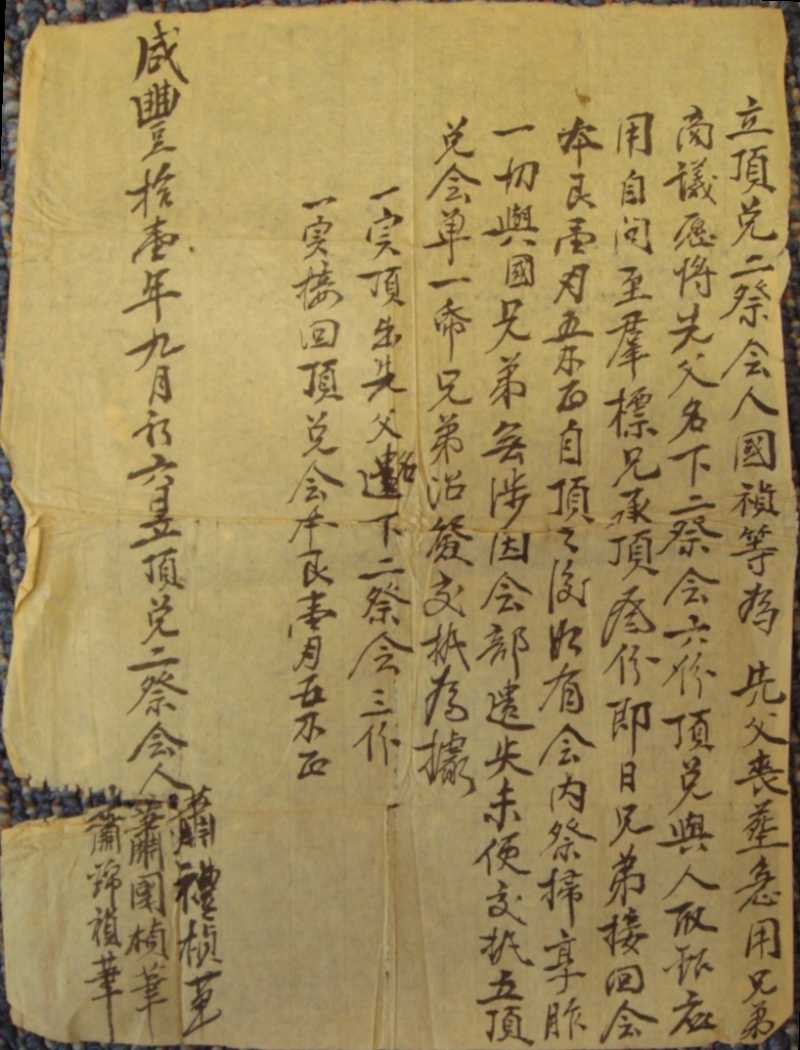 立頂兑二祭会人國禎等為先父喪塟急用兄弟
商議愿将先父名下二祭会六份頂兑與人取銀应
用自问至羣標兄承頂叁份即日兄弟接回会
本艮壹刄五不正自頂之後如有会内祭掃享胙
一切與國兄弟無涉因会部遺失未便交执立頂
兑会单一帋兄弟沿發交执為據
一实頂出先父名下二祭会三份
一实接回頂兑会本艮壹刄五不正
咸豐拾壹年九月初六日立頂兑二祭会人
蕭禮楨筆
蕭國楨華
蕭錦禎華